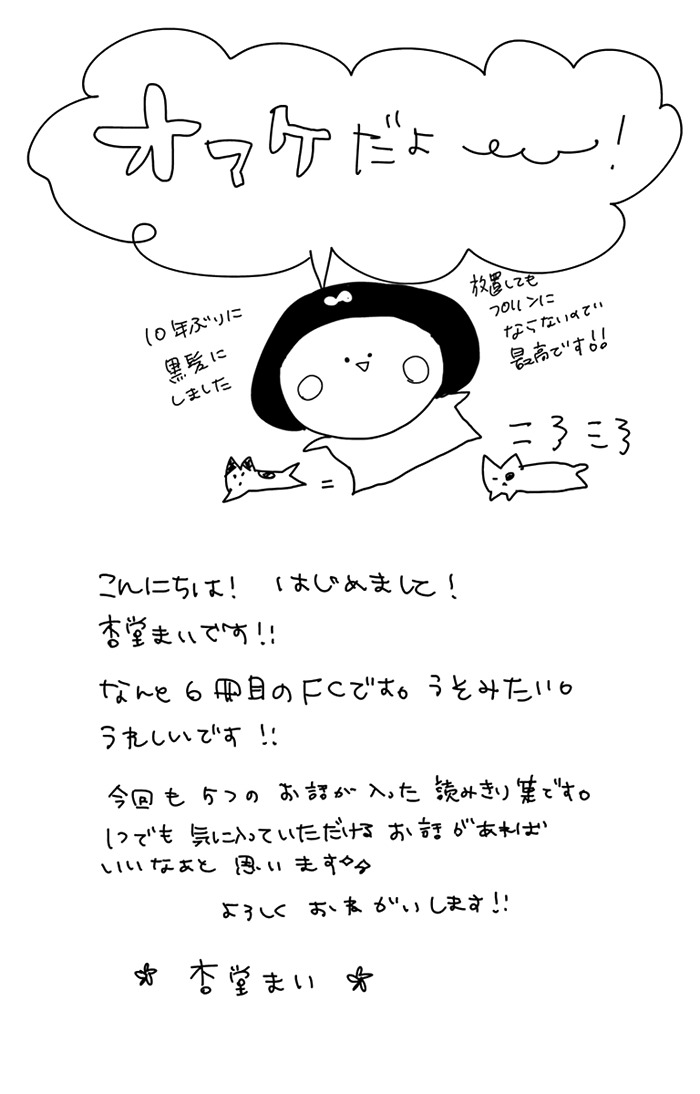 オマケだよ〜〜!
10年ぶりに
黒髪に
しました
放置しても
プリンに
ならないので
最高です!!
コろコろ
こんにちは! はじめまして!
杏堂まいです!!
なんと6冊目のFCです。うそみたい。
うれしいです!!
今回も5つのお話が入った読みきり集です。
1つでも気に入っていただけるお話があれば
いいなぁと思います
よろしくおねがいします!!
杏堂まい